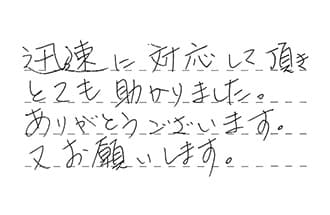 迅速に対応して頂き
とても助かりました。
ありがとうございます。
又お願いします。